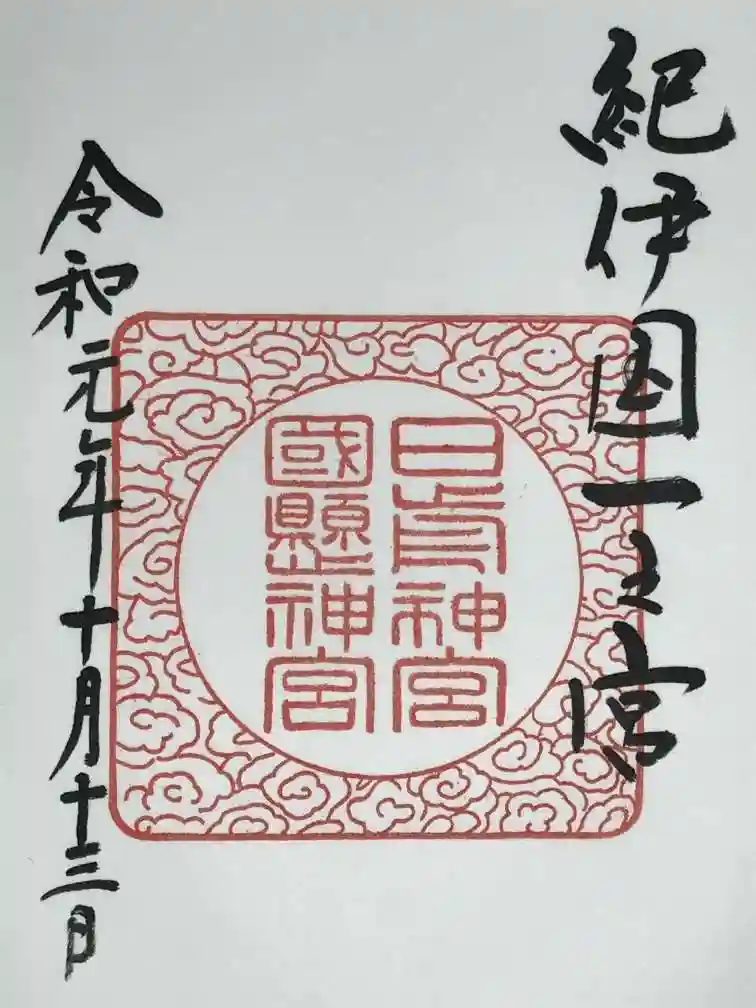 紀伊国一之宮
日前神宮
國懸神宮
令和元年十月十三日